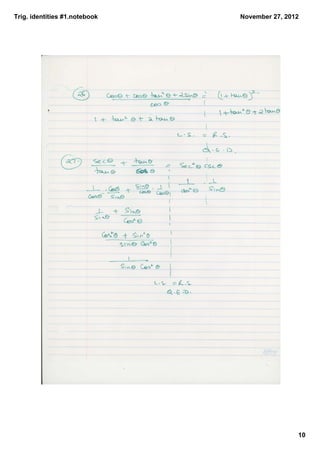 Trig. identities #1.notebook
November 27, 2012
26) (cosθ + cosθ tan²θ + 2sinθ) / cosθ = (1 + tanθ)²
1 + tan²θ + 2 tanθ | 1 + tan²θ + 2 tanθ
L.S. = R.S.
Q.E.D.
27) secθ / tanθ + tanθ / cosθ = sec²θ cscθ
1/cosθ · cosθ/sinθ + sinθ/cosθ · 1/cosθ | 1/cos²θ · 1/sinθ
1/sinθ + sinθ/cos²θ
(cos²θ + sin²θ) / (sinθ cos²θ)
1 / (sinθ cos²θ)
L.S. = R.S.
Q.E.D.
10